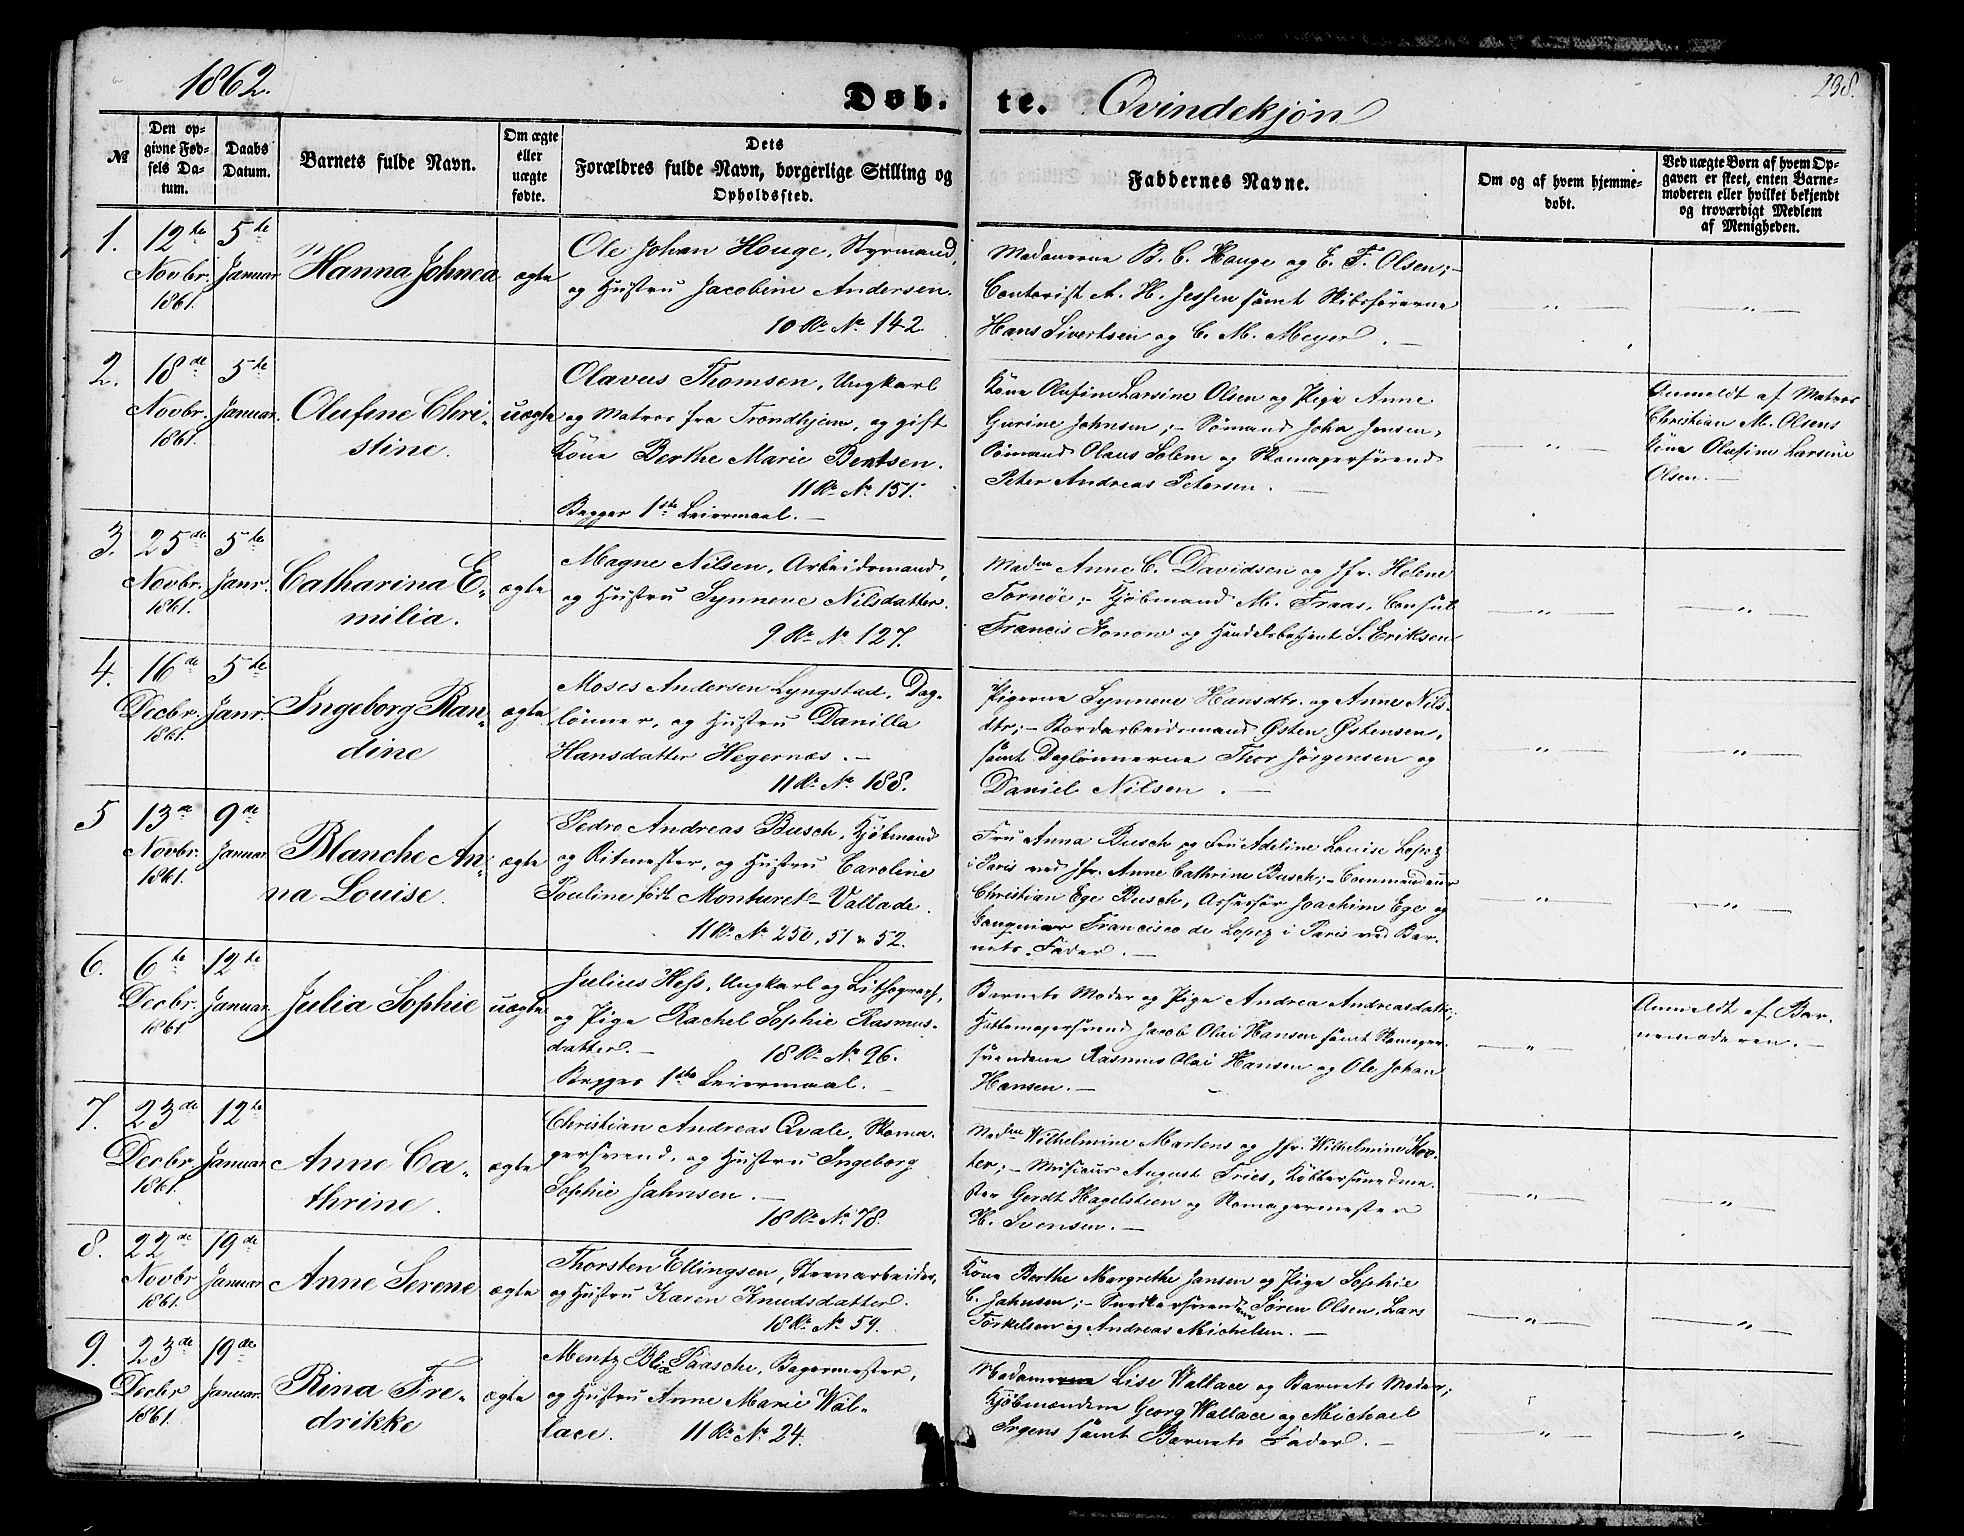 1862.
Døb-
te. Qvindekjøn
238.
№
Den op-
givne Fød-
sels Da-
tum.
Daabs
Datum.
Barnets fulde Navn.
Om ægte
eller
uægte
fødte.
Dets
Forældres fulde Navn, borgerlige Stilling og
Opholdssted.
Faddernes Navne.
Om og af hvem hjemme-
døbt.
Ved uægte Børn af hvem Op-
gaven er skeet, enten Barne-
moderen eller hvilket bekjendt
og troværdigt Medlem
af Menigheden.
1.
12te
Novbr.
1861.
5te
Januar
Hanna Johnea
ægte
Ole Johan Houge, Styrmand,
og Hustru Jacobine Andersen.
10 R. No 142.
Madamerne B. C. Hauge og E. F. Olsen;-
Contorist A. H. Jessen samt Skibsførerne
Hans Sivertsen og C. M. Meyer.-
—"—
—"—
2.
18de
Novbr.
1861.
5te
Januar.
Olufine Chri-
stine.
uægte
Olavus Thomsen, Ungkarl
og Matros fra Trondhjem, og gift
Kone Berthe Marie Bentsen.
11 R. No 151.
Begges 1ste Leiermaal.-
Kone Olufine Larsine Olsen og Pige Anne
Gurine Johnsen;- Sømand John Jensen,
Sømand Olaus Solem og Skomagersvend
Peter Andreas Petersen.-
—"—
Anmeldt af Matros
Christian M. Olsens
Kone Olufine Larsine
Olsen.-
3.
25de
Novbr.
1861.
5te
Janr.
Catharina E-
milia.
ægte
Magne Nilsen, Arbeidsmand,
og Hustru Synneve Nilsdatter.
9 R. No 127.
Madme Anne C. Davidsen og Jfr. Helene
Tornøe;- Kjøbmand M. Fraas, Consul
Francis Konow og Handelsbetjent S. Eriksen
—"—
—"—
4.
16de
Decbr.
1861.
5te
Janr.
Ingeborg Ran-
dine
ægte
Moses Andersen Lyngstad, Dag-
lønner, og Hustru Danilla
Hansdatter Hegernæs.-
11 R. No 188.
Pigerne Synneve Hansdtr. og Anne Nils-
dtr;- Bordarbeidsmand Østen Østensen,
samt Daglønnerne Thor Jørgensen og
Daniel Nilsen.-
—"—
—"—
5
13de
Novbr.
1861.
9de
Januar
Blanche An-
na Louise.
ægte
Pedro Andreas Busch, Kjøbmand
og Ritmester, og Hustru Caroline
Pouline født Monturet-Vallade.
11 R. No 250, 51 & 52.
Fru Anna Busch og Fru Adeline Louise Lopez
i Paris ved Jfr. Anne Cathrine Busch;- Commandeur
Christian Ege Busch, Assessor Joachim Ege og
Banquier Francisco de Lopez i Paris ved Bar-
nets Fader.-
—"—
—"—
6.
6te
Decbr.
1861
12te
Januar
Julia Sophie
uægte
Julius Hess, Ungkarl og Lithograph,
og Pige Rachel Sophie Rasmus-
datter.-
18 R. No 96.
Begges 1ste Leiermaal.-
Barnets Moder og Pige Andrea Andreasdatt;
Hattemagersvend Jacob Olai Hansen samt Skomager-
svendene Rasmus Olai Hansen og Ole Johan
Hansen.-
—"—
Anmeldt af Bar-
nemoderen.-
7.
23de
Decbr.
1861.
12te
Januar
Anne Ca-
thrine.
ægte
Christian Andreas Qvale, Skoma-
gersvend, og Hustru Ingeborg
Sophie Jahnsen.-
18 R. No 78.
Madme Wilhelmine Martens og Jfr. Wilhelmine
ter;- Musicus August Fries, Kobbersmedme-
ster Gerdt Hagelsteen og Skomagermester
H. Svensen.-
—"—
—"—
8.
22de
Novbr
1861.
19de
Januar
Anne Serene
ægte
Thorsten Ellingsen, Steenarbeider,
og Hustru Karen Knudsdatter.
18 R. No 59.
Kone Berthe Margrethe Jansen og Pige Sophie
C. Jahnsen;- Snedkersvendene Søren Olsen, Lars
Torkelsen og Andreas Michelsen.-
—"—
—"—
9.
23de
Decbr
1861.
19de
Januar.
Rina Fre-
drikke
ægte
Mentz Blix Paasche, Bagermester,
og Hustru Anne Marie Wal-
lace. 11 R. No 24.
Madamerne Lise Wallace og Barnets Moder;
Kjøbmændene Georg Wallace og Michael
Irgens samt Barnets Fader.-
—"—
—"—